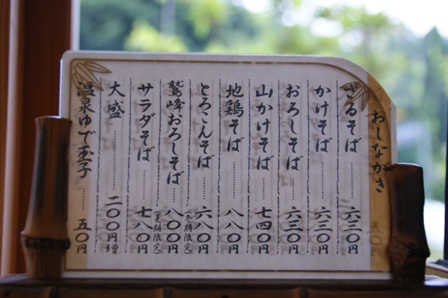 おしながき
ざるそば 六三〇円
かけそば 六三〇円
おろしそば 六三〇円
山かけそば 七四〇円
地鶏そば 八八〇円
とろこんそば 六八〇円
鷲峰おろしそば 八〇〇円
サラダそば 七八〇円
(夏期限定)
大盛 二〇〇円増
温泉ゆで玉子 五〇円